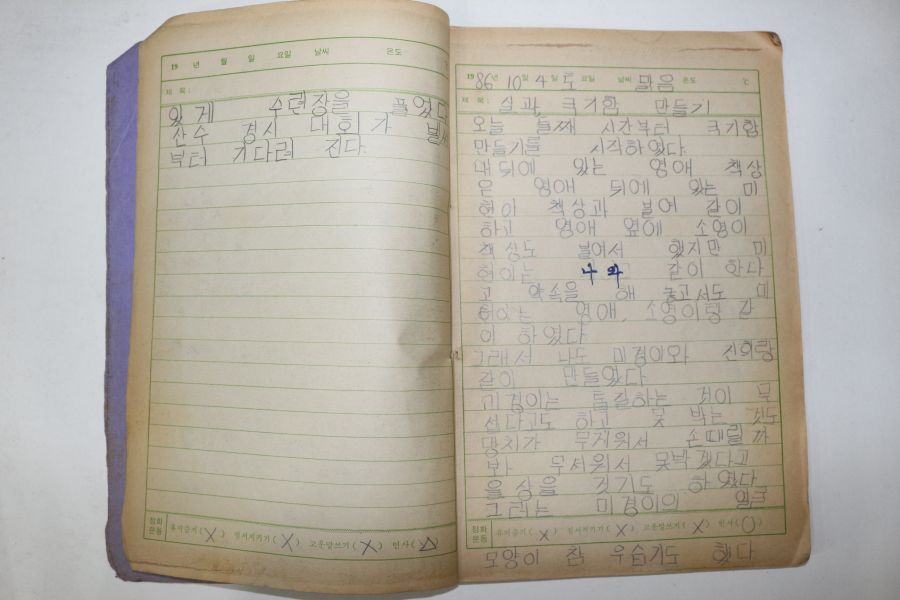 19 년 월 일 요일 날씨 온도
제 목 :
있게 수련장을 풀었다
산수 경시 대회가 벌써
부터 기다려 진다.
정화 운동 휴지줍기 ( X ) 질서지키기 ( X ) 고운말쓰기 ( X ) 인사 ( △ )
1986년 10월 4일 토요일 날씨 맑음 온도 ℃
제 목 : 실과, 국기함 만들기
오늘 둘째 시간부터 국기함
만들기를 시작하였다.
내 뒤에 있는 영애 책상
은 영애 뒤에 있는 미
현이 책상과 붙어 같이
하고 영애 옆에 소영이
책상도 붙어서 했지만 미
현이는 나와 같이 한다
고 약속을 해 놓고서도 미
현이는 영애, 소영이랑 같
이 하였다.
그래서 나도 미경이와 진희랑
같이 만들었다.
미경이는 톱질하는 것이 무
섭다고도 하고 못 박는 것도
망치가 무거워서 손때릴 까
봐 무서워서 못박겠다고
울상을 짓기도 하였다.
그러는 미경이의 얼굴
정화 운동 휴지줍기 ( X ) 질서지키기 ( X ) 고운말쓰기 ( X ) 인사 ( O )
모양이 참 우습기도 했다